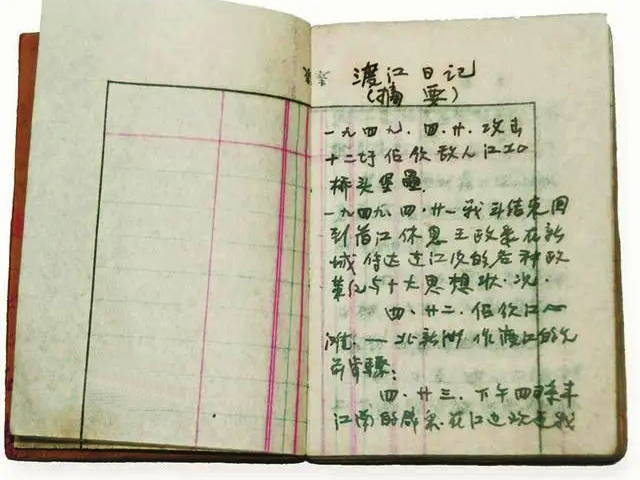 渡江日记
(摘要)
一九四九.四.廿.攻击
十二圩佔领敌人江北
桥头堡垒.
一九四九.四.廿一战斗结束回
到 江休息王政委在新
城传达过江后的各种政
策化与十大思想状.况.
四.廿二.佔领江心
洲.一北新洲作渡江的先
前步骤:
四.廿三.下午四时乘
江南的 在江边欢迎我